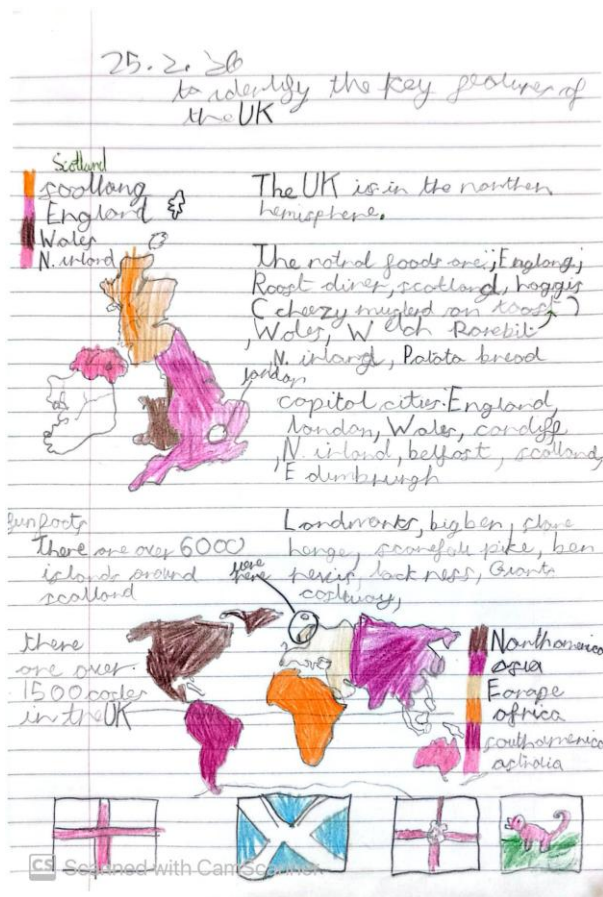 25.2.26
to identify the key features of
the UK
Scotland
scotlang
England
Wales
N. inland
The UK is in the northen
hemisphere.
The notnal foods are; Englang;
Roost diner, scotland, haggis
( cheezy musterd on toast )
, Wales, Welch Rarebit
, N. irland, Patata bread
london
capital cities: England,
london, Wales, cardiff
, N. irland, belfast, scotland,
Edumbrurgh
funfacts
There are over 6000
islands around
scotland
Landmarks, big ben, stone
henge, scarefell pike, ben
nevis, lock ness, Giants
costway,
were
here
there
are over
1500 casles
in the UK
North america
asia
Earope
africa
south america
astralia
CS Scanned with CamScanner